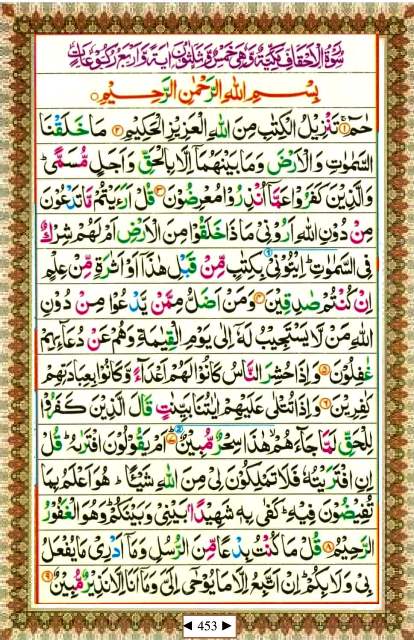 سُوْرَةُ الْاَحْقَافِ مَكِّيَّةٌ وَّهِىَ خَمْسٌ وَّثَلٰثُوْنَ اٰيَةً وَّاَرْبَعُ رُكُوْعَاتٍ
بِسْمِ اللهِ الرَّحْمٰنِ الرَّحِيْمِ
حٰمٓ ۚ‏ ﴿۱﴾ تَنْزِيْلُ الْكِتٰبِ مِنَ اللهِ الْعَزِيْزِ الْحَكِيْمِ ﴿۲﴾ مَا خَلَقْنَا
السَّمٰوٰتِ وَالْاَرْضَ وَمَا بَيْنَهُمَاۤ اِلَّا بِالْحَقِّ وَاَجَلٍ مُّسَمًّى ؕ
وَالَّذِيْنَ كَفَرُوْا عَمَّاۤ اُنْذِرُوْا مُعْرِضُوْنَ ﴿۳﴾ قُلْ اَرَءَيْتُمْ مَّا تَدْعُوْنَ
مِنْ دُوْنِ اللهِ اَرُوْنِىْ مَاذَا خَلَقُوْا مِنَ الْاَرْضِ اَمْ لَهُمْ شِرْكٌ
فِى السَّمٰوٰتِ ؕ اِيْتُوْنِىْ بِكِتٰبٍ مِّنْ قَبْلِ هٰذَاۤ اَوْ اَثٰرَةٍ مِّنْ عِلْمٍ
اِنْ كُنْتُمْ صٰدِقِيْنَ ﴿۴﴾ وَمَنْ اَضَلُّ مِمَّنْ يَّدْعُوْا مِنْ دُوْنِ
اللهِ مَنْ لَّا يَسْتَجِيْبُ لَهٗۤ اِلٰى يَوْمِ الْقِيٰمَةِ وَهُمْ عَنْ دُعَآئِهِمْ
غٰفِلُوْنَ ﴿۵﴾ وَاِذَا حُشِرَ النَّاسُ كَانُوْا لَهُمْ اَعْدَآءً وَّكَانُوْا بِعِبَادَتِهِمْ
كٰفِرِيْنَ ﴿۶﴾ وَاِذَا تُتْلٰى عَلَيْهِمْ اٰيٰتُنَا بَيِّنٰتٍ قَالَ الَّذِيْنَ كَفَرُوْا
لِلْحَقِّ لَمَّا جَآءَهُمْ هٰذَا سِحْرٌ مُّبِيْنٌ ﴿۷﴾ اَمْ يَقُوْلُوْنَ افْتَرٰٮهُ ؕ قُلْ
اِنِ افْتَرَيْتُهٗ فَلَا تَمْلِكُوْنَ لِىْ مِنَ اللهِ شَيْئًا ؕ هُوَ اَعْلَمُ بِمَا
تُفِيْضُوْنَ فِيْهِ ؕ كَفٰى بِهٖ شَهِيْدًۢا بَيْنِىْ وَبَيْنَكُمْ ؕ وَهُوَ الْغَفُوْرُ
الرَّحِيْمُ ﴿۸﴾ قُلْ مَا كُنْتُ بِدْعًا مِّنَ الرُّسُلِ وَمَاۤ اَدْرِىْ مَا يُفْعَلُ
بِىْ وَلَا بِكُمْ ؕ اِنْ اَتَّبِعُ اِلَّا مَا يُوْحٰۤى اِلَىَّ وَمَاۤ اَنَا اِلَّا نَذِيْرٌ مُّبِيْنٌ ﴿۹﴾
◄ 453 ►